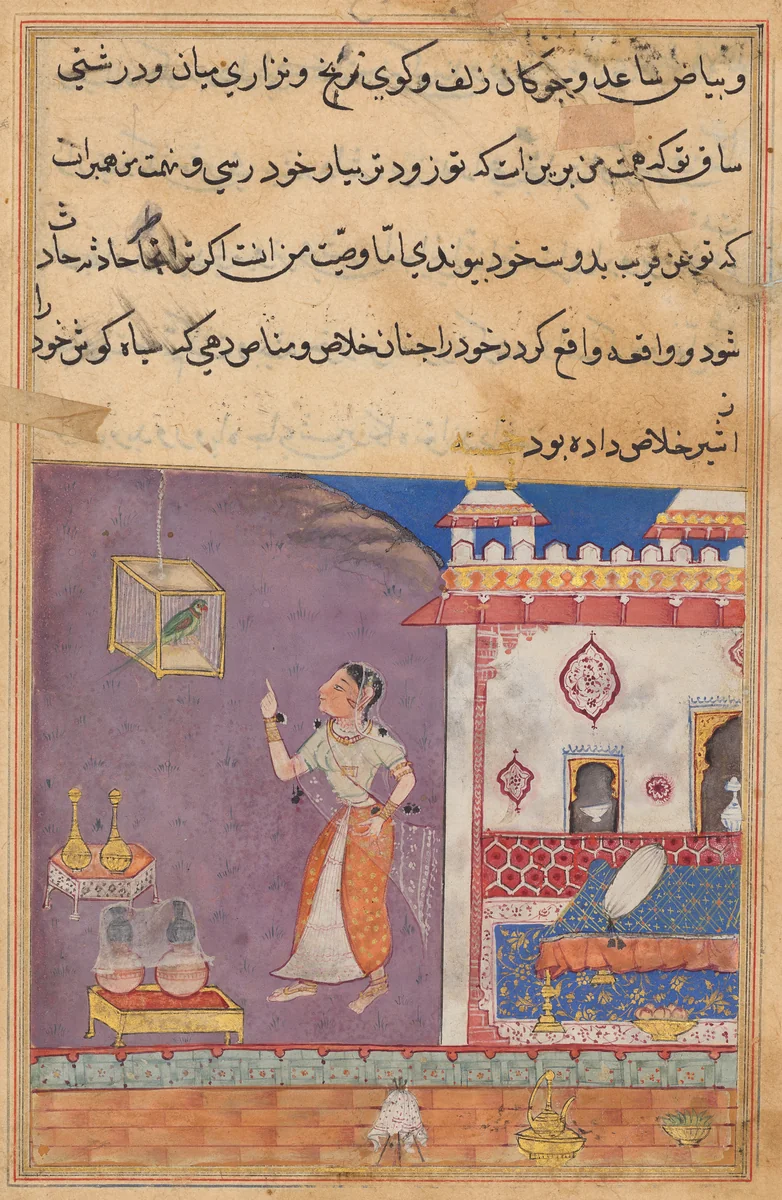 و بیاض ساعد و چوکان زلف و کوي زنخ و نزاري میان و درشتي
ساق تو که همت من برین است که تو زود تر بیار خود رسي و نهمت من همبران است
که تو عن قریب بدوست خود بیوندي امّا وصیّت من انست اکر ترا انجا حادثه حادث
شود و واقعه واقع کردد خود را چنان خلاص و مناص دهي که سیاه کوش خود را
از شیر خلاص داده بود